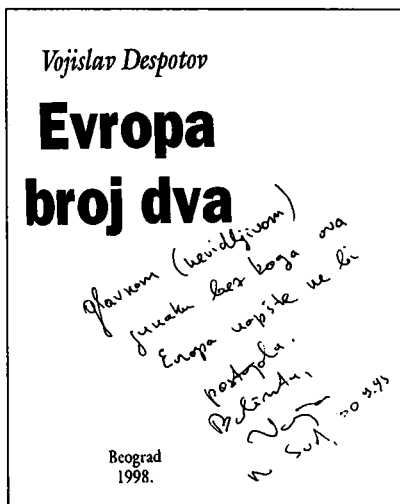 Vojislav Despotov
Evropa
broj dva
glavnom (nevidljivom)
junaku bez koga ova
Evropa uopšte ne bi
postojala.
Balintu,
Beograd
1998.